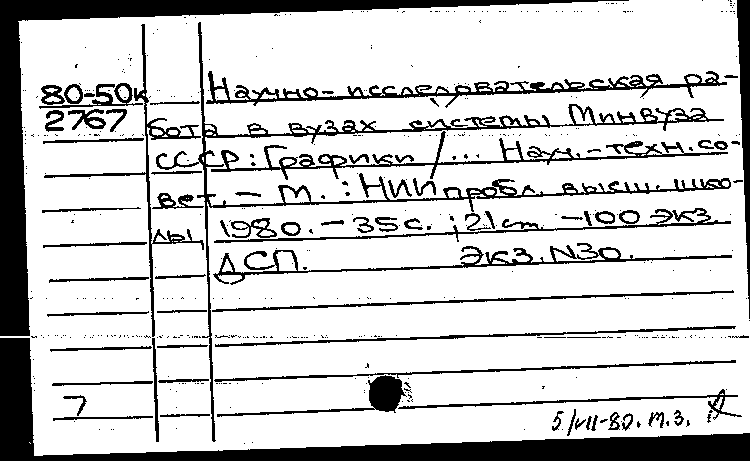 80-50к Научно-исследовательская ра-
2767 бота в вузах системы Минвуза
СССР: Графики / ... Науч.-техн. со-
вет. - М. : НИИ пробл. высш. шко-
лы, 1980. - 35 с. ; 21 cm - 100 экз.
ДСП. Экз. N30.
7
5/VII-80. м.з.